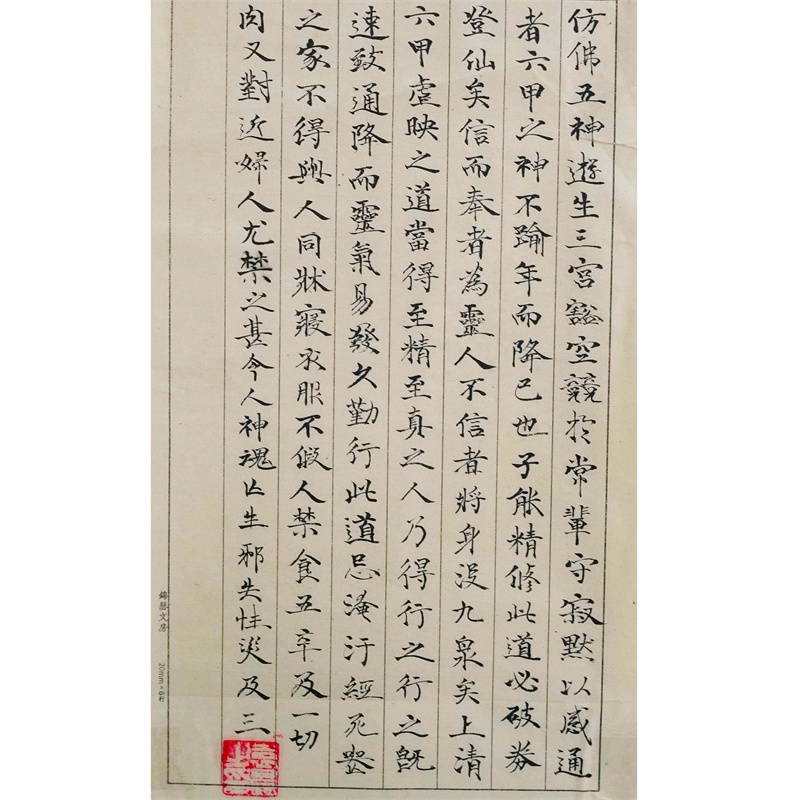 仿佛五神遊生三宮豁空競於常輩守寂默以感通
者六甲之神不踰年而降已也子能精修此道必破券
登仙矣信而奉者為靈人不信者將身沒九泉矣上清
六甲虛映之道當得至精至真之人乃得行之行之既
速致通降而靈氣易發久勤行此道忌淹汙經死喪
之家不得與人同牀寢衣服不假人禁食五辛及一切
肉又對近婦人尤禁之甚令人神魂亡生邪失性災及三
錦瑟文房
20mm×8行